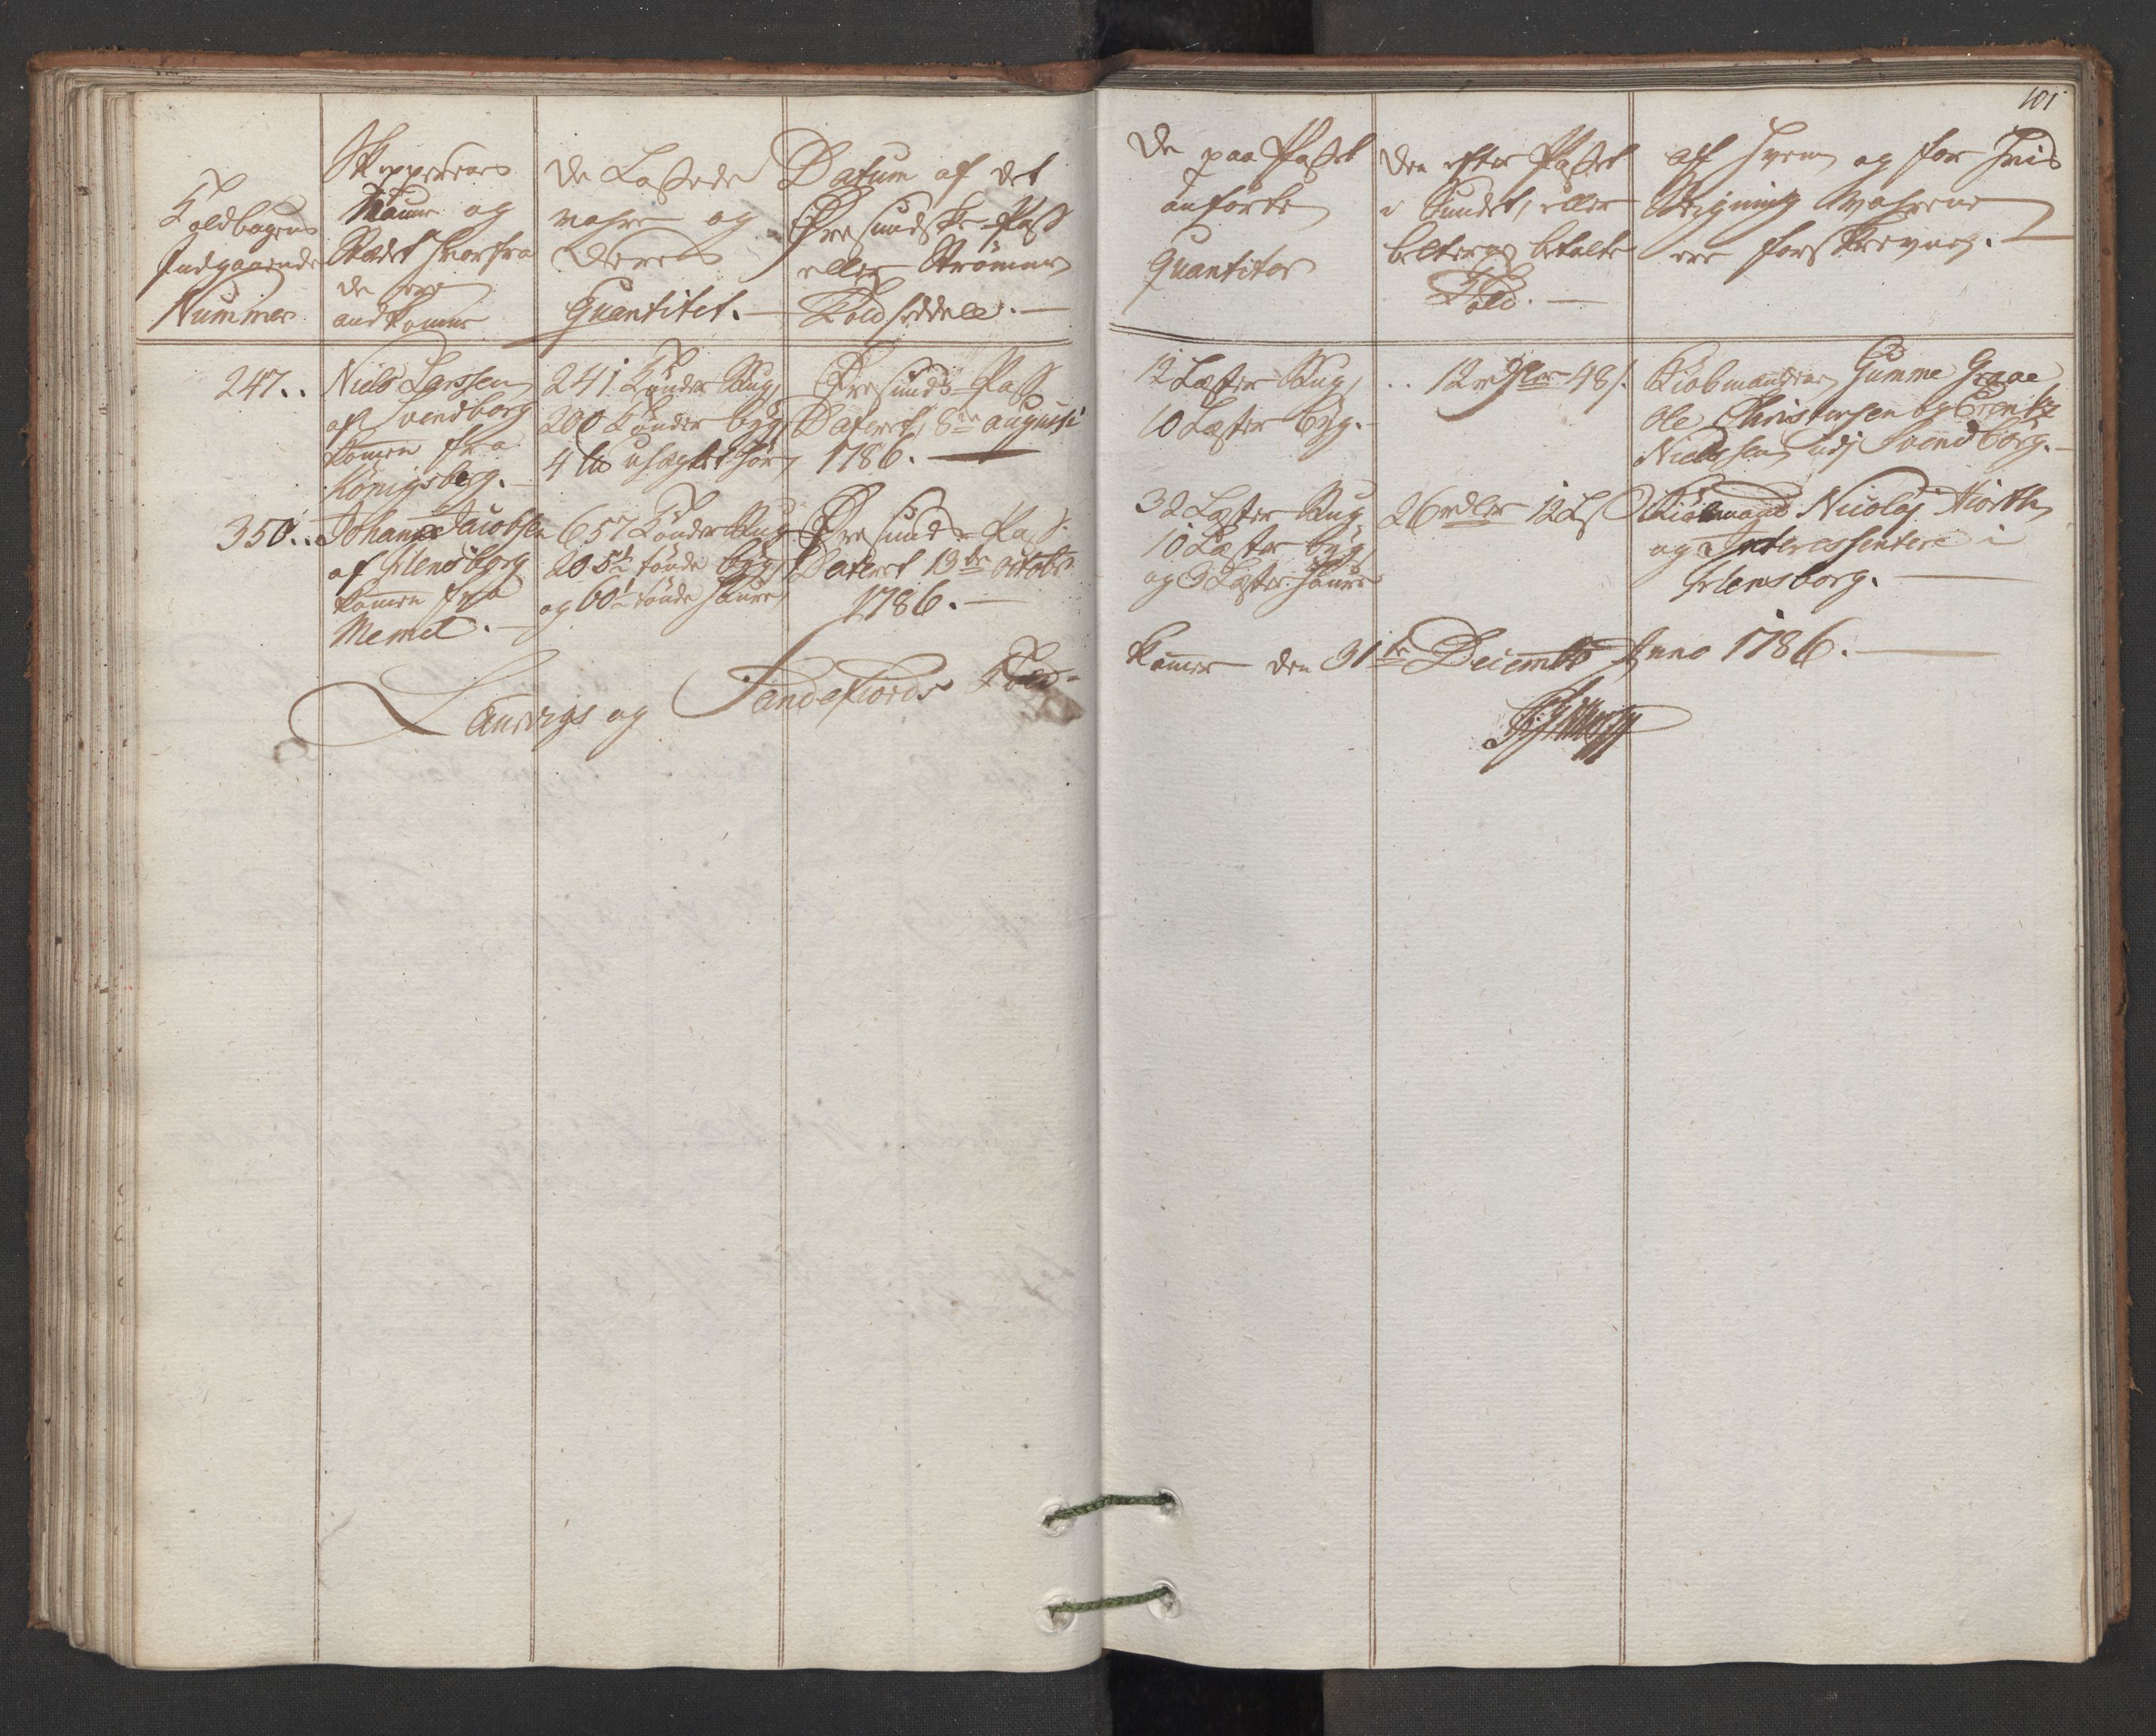 101
Toldbogens
Indgaaende
Nummer
Skippernes
Naune og
Stædet hvorfra
de ere
andkomne
De Lossede
vahre og
Deres
Quantitet.
Datum af det
Øresundske Pass
eller Strømmens
Toldseddel.
De paa Passet
anførte
Quantiter
den efter Passet
i Sundet, eller
belterne betalte
Told.
Aff Hvem og for Hvis
Regning Wahrene
ere forskrevne.
247.
Niels Larssen
af Svendborg
kommen fra
Königsberg.
241 Tønder Rug
200 Tønder byg
4 usegtet hør
Øresunds Pass
Dateret 8de augusti
1786.
12 Læster Rug,
10 Læster byg.
12 rdler 48 s.
Kiøbmændene Gumme Graae
Ole Christensen og Frentz
Nielssen udj Svendborg.
350.
Johann Jacobsen
af Flensborg
kommen fra
Memel.
657 Tønder Rug
205½ tønde byg
og 60½ tønde Haure
Øresunds Pass
Dateret 13de octobr
1786.
32 Læster Rug
10 Læster byg
og 3 Læster Haure
26 rdler 12
Kiøbmand Nicolaj Hiorth
og Interessentere i
Flensborg.
Laurvigs og Sandefiords Told-
kammer den 31te Decembr Anno 1786.